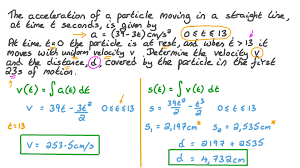 The acceleration of a particle moving in a straight line,
at time t seconds, is given by
→ a = (39-3t) cm/s², 0 ≤ t ≤ 13
At time t=0 the particle is at rest, and when t > 13 it
moves with uniform velocity v. Determine the velocity, v
and the distance, d, covered by the particle in the first
23s of motion.
v(t) = ∫ a(t) dt
v = 39t - 3t²/2 0 ≤ t ≤ 13
t=13
v = 253.5 cm/s
s(t) = ∫ v(t) dt
s = 39t²/2 - t³/2 0 ≤ t ≤ 13
s₁ = 2,197cm* s₂ = 2,535cm*
d = 2197 + 2535
d = 4,732 cm